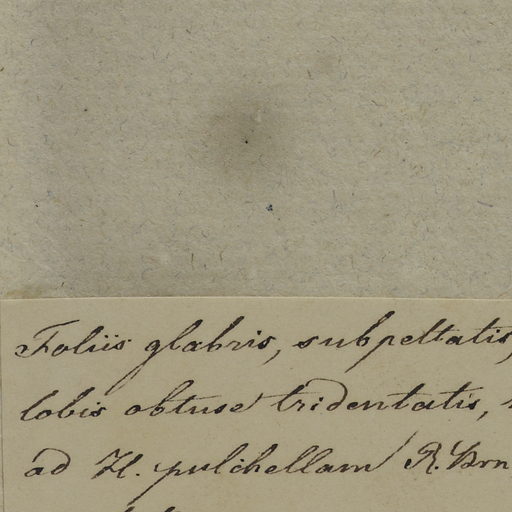 Foliis glabris, subpeltatis,
lobis obtuse tridentatis,
ad H. pulchellam R. Brn